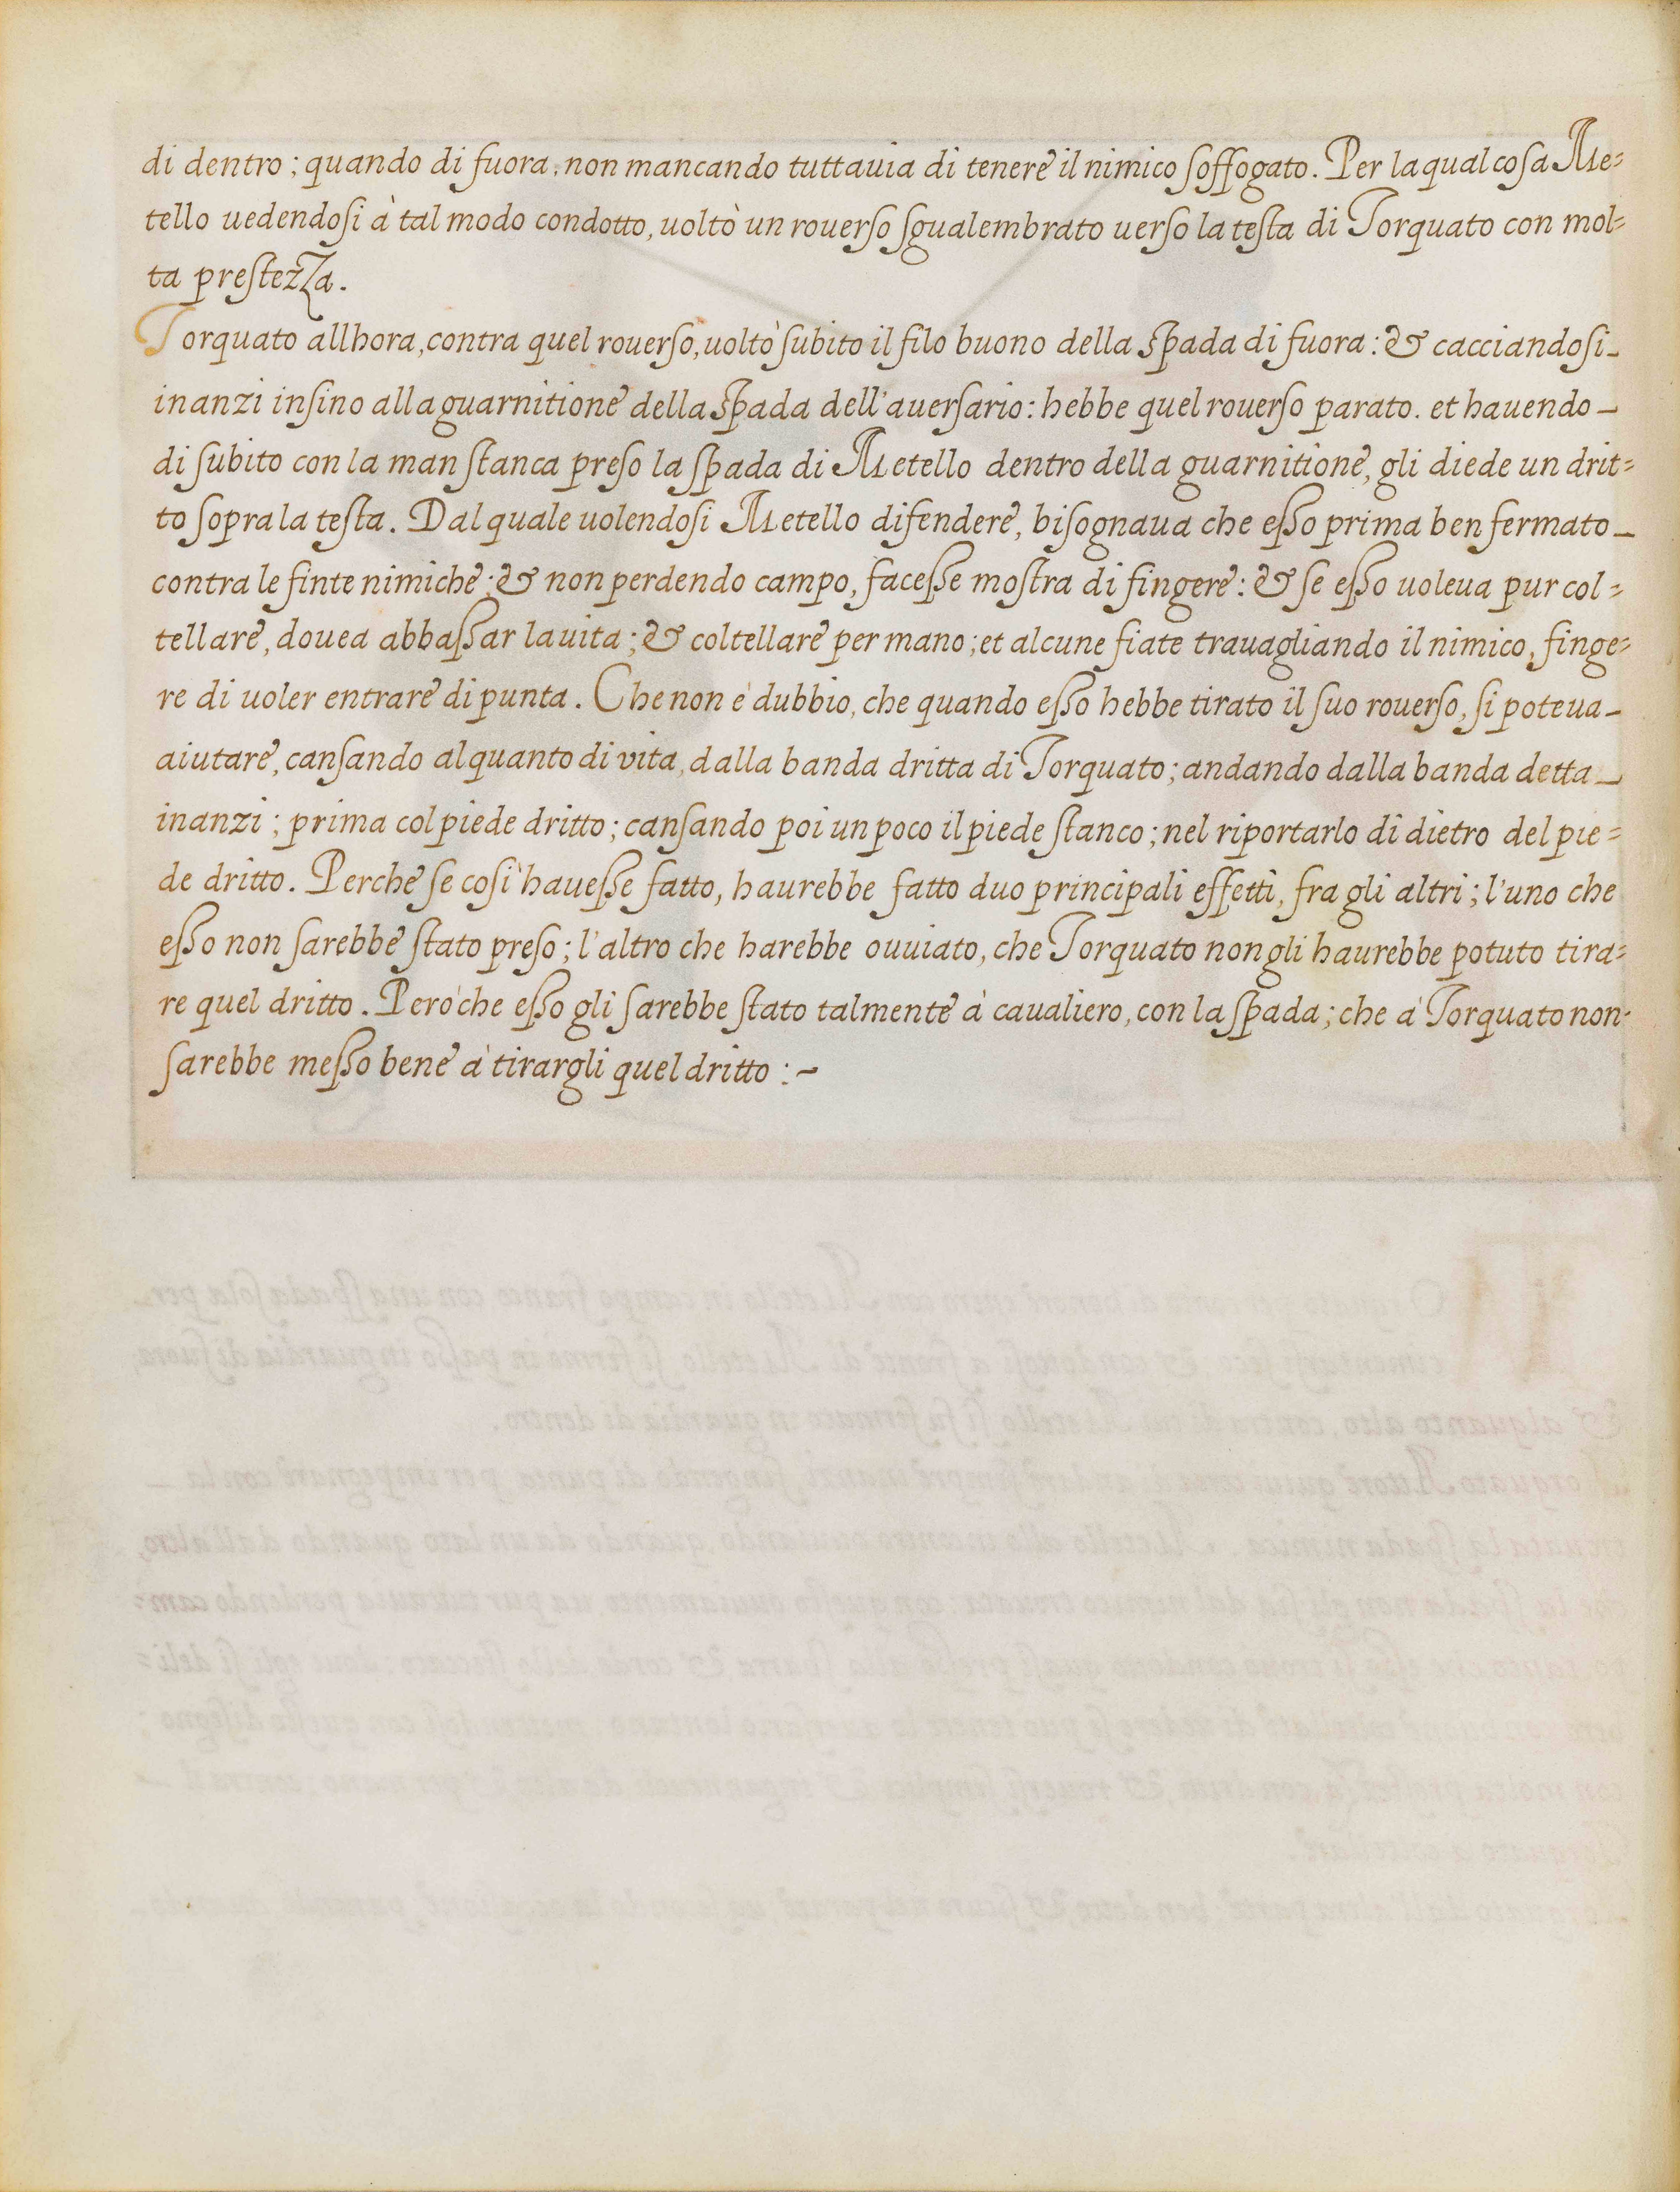 di dentro; quando di fuora. non mancando tuttauia di tenere il nimico soffogato. Per la qual cosa Me=
tello uedendosi à tal modo condotto, uoltò un rouerso sgualembrato uerso la testa di Torquato con mol=
ta prestezza.
Torquato allhora, contra quel rouerso, uoltò subito il filo buono della spada di fuora: & cacciandosi_
inanzi insino alla guarnitione della spada dell'auersario: hebbe quel rouerso parato. et hauendo_
di subito con la man stanca preso la spada di Metello dentro della guarnitione, gli diede un drit=
to sopra la testa. Dal quale uolendosi Metello difendere, bisognaua che esso prima ben fermato_
contra le finte nimiche; & non perdendo campo, facesse mostra di fingere: & se esso uoleua pur col=
tellare, douea abbassar la uita; & coltellare per mano; et alcune fiate trauagliando il nimico, finge=
re di uoler entrare di punta. Che non è dubbio, che quando esso hebbe tirato il suo rouerso, si poteua_
aiutare, cansando alquanto di vita, dalla banda dritta di Torquato; andando dalla banda detta_
inanzi; prima col piede dritto; cansando poi un poco il piede stanco; nel riportarlo di dietro del pie=
de dritto. Perche se così hauesse fatto, haurebbe fatto duo principali effetti, fra gli altri; l'uno che
esso non sarebbe stato preso; l'altro che harebbe ouuiato, che Torquato non gli haurebbe potuto tira=
re quel dritto. Peròche esso gli sarebbe stato talmente à caualiero, con la spada; che à Torquato non-
sarebbe messo bene à tirargli quel dritto :~